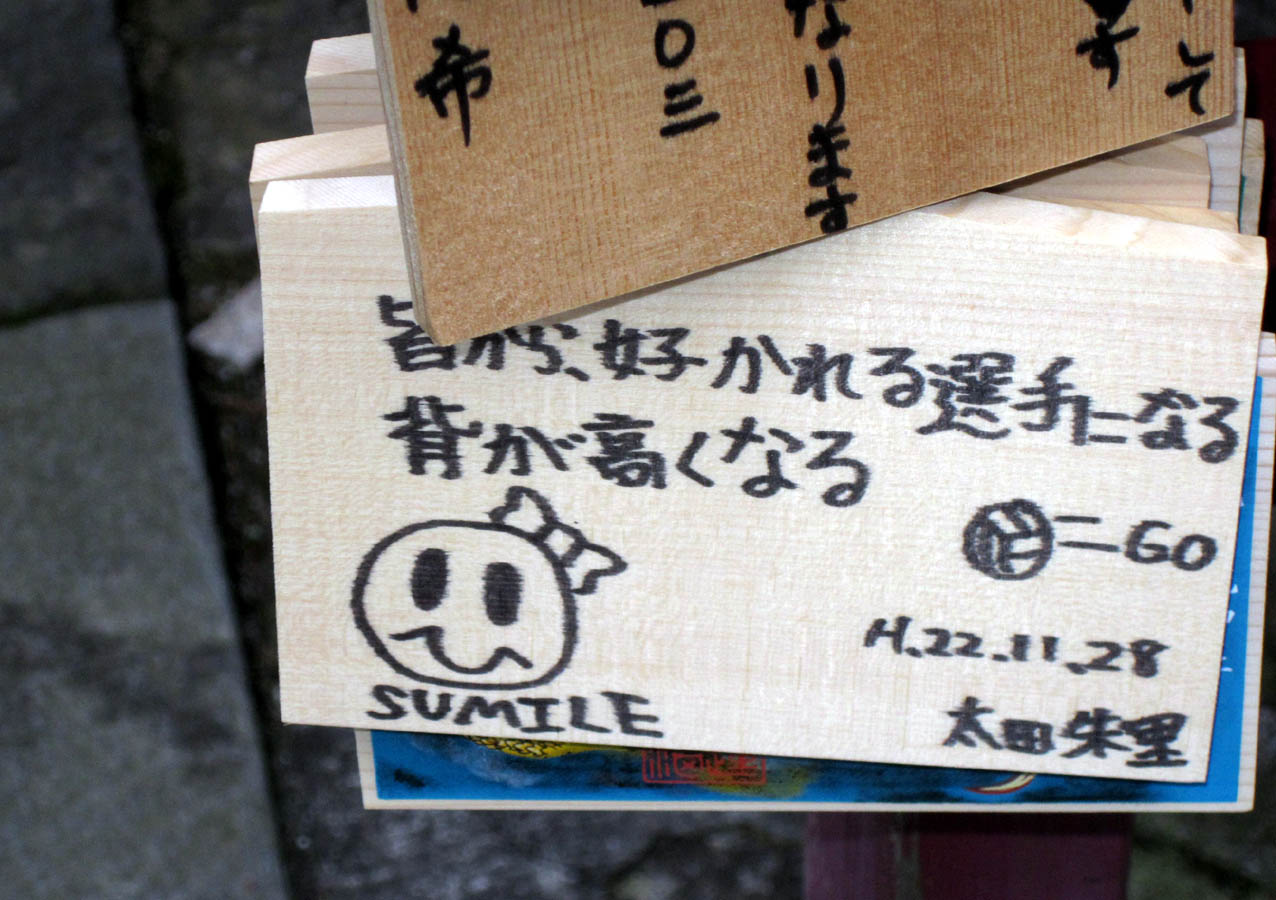 して
す
なります
〇三
希
皆から、好かれる選手になる
背が高くなる
GO
H.22.11.28
SUMILE
太田朱里